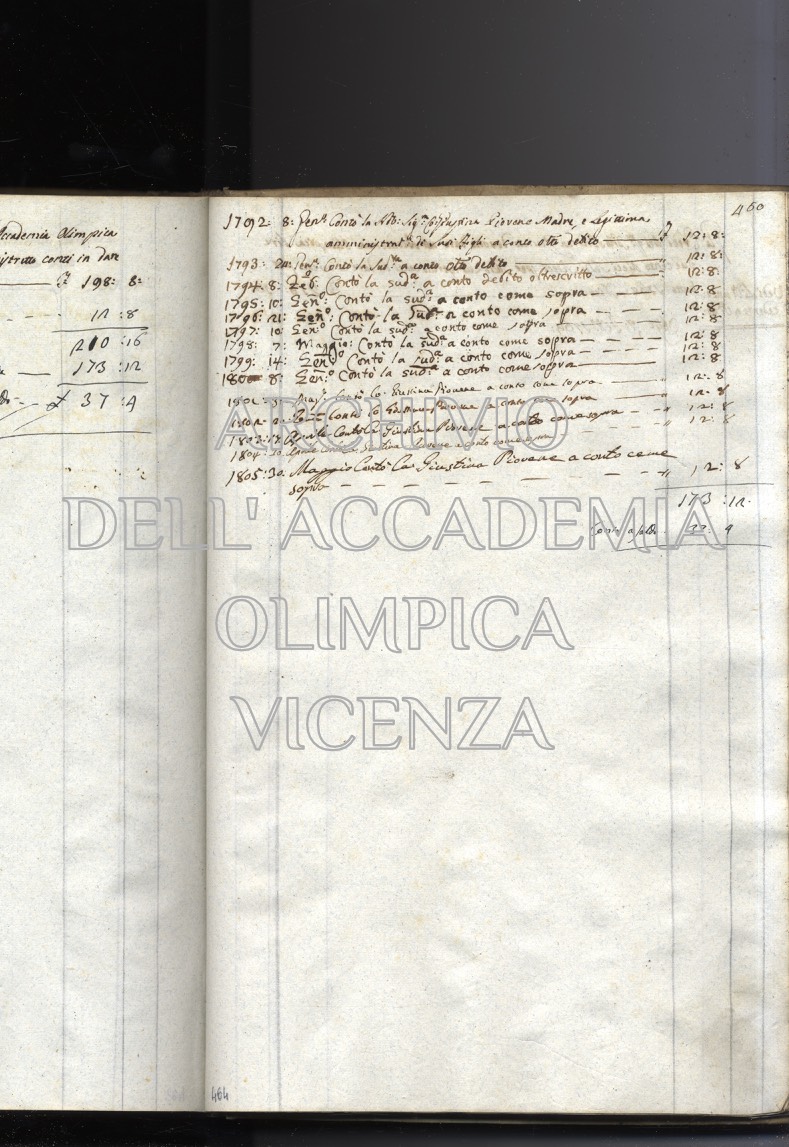 Accademia Olimpica
conti in Dare
198: 8:
12:8
210:16
173:12
37:4
460
1792: 8: Contò la Nob: Sig.ra Giustina Piovene Madre, e Legittima
amministrat.e di suoi Figli a conto otto debito 12:8:
1793: 24: Contò la Sud.ta a conto debito 12:8:
1794: 8: Feb.o Contò la sud.a a conto debito oltrescritto 12:8:
1795: 10: Gen.o: Contò la sud.a: a conto come sopra 12:8
1796: 21: Gen.o: Contò la Sud.a: a conto come sopra 12:8
1797: 10: Gen.o Contò la sud.a a conto come sopra 12:8
1798: 7: Maggio: Contò la sud.a a conto come sopra 12:8
1799: 14: Gen.o: Contò la sud.a: a conto come sopra 12:8
1800 8: Gen.o: Contò la sud.a a conto come sopra 12:8
Contò la Giustina Piovene a conto come sopra 12:8
Contò la Giustina Piovene a conto come sopra 12:8
1803: Aprile Contò la Giustina Piovene a conto come sopra 12:8
1804: 30: Aprile Contò la Giustina Piovene a conto come sopra 12:8
1805: 30: Maggio Contò la Giustina Piovene a conto come
sopra 12:8
173:12
37:4
ARCHIVIO
DELL'ACCADEMIA
OLIMPICA
VICENZA
464